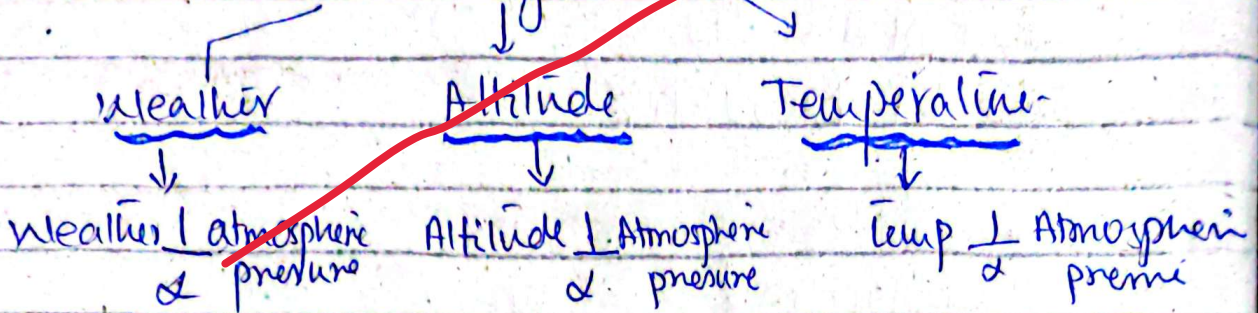 Weather Altitude Temperature
Weather 1/α atmospheric pressure Altitude 1/α Atmospheric pressure Temp 1/α Atmospheric pressure